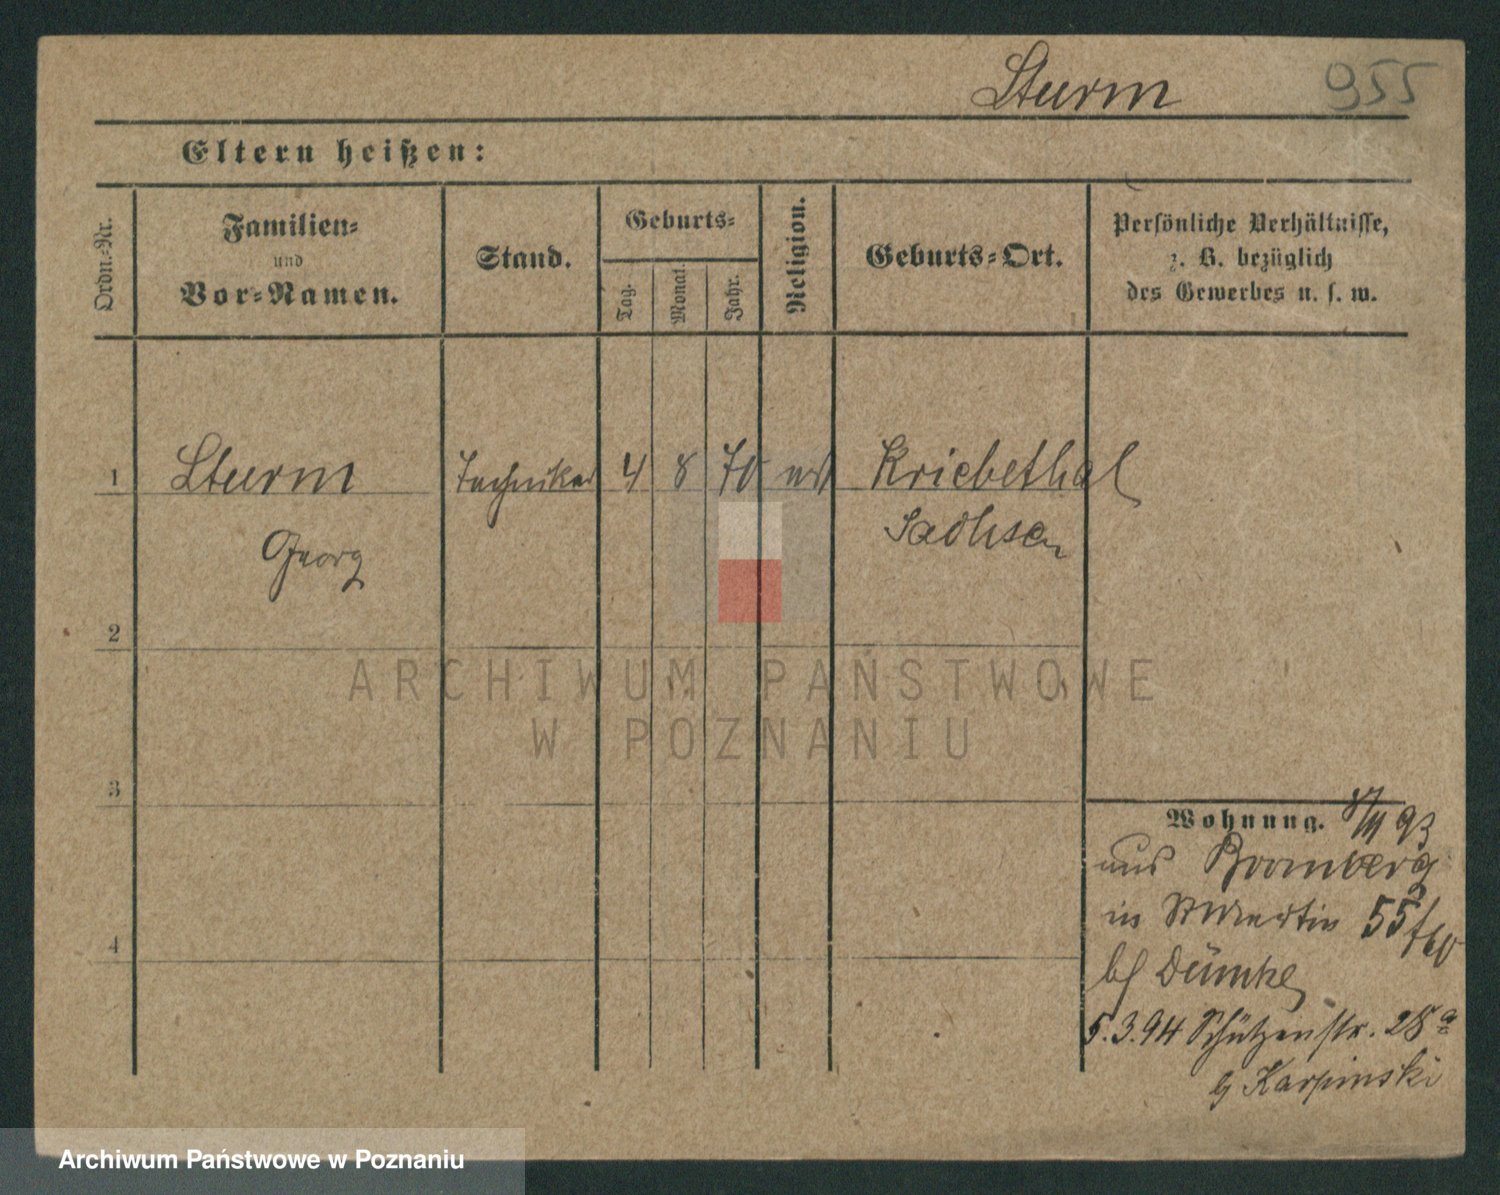 Sturm 955
Eltern heißen:
Ordn.-Nr.
Familien-
und
Vor-Namen.
Stand.
Geburts-
Tag.
Monat.
Jahr.
Religion.
Geburts-Ort.
Persönliche Verhältnisse,
z. B. bezüglich
des Gewerbes u. s. w.
1 Sturm Techniker 4 8 70 Kriebethal
Georg Sachsen
2
3
4
Wohnung. 93
aus Bromberg
in St Martin 55
bei Dümke
5.3.94 Schützenstr. 28a
Karpinski
ARCHIWUM PAŃSTWOWE
W POZNANIU
Archiwum Państwowe w Poznaniu